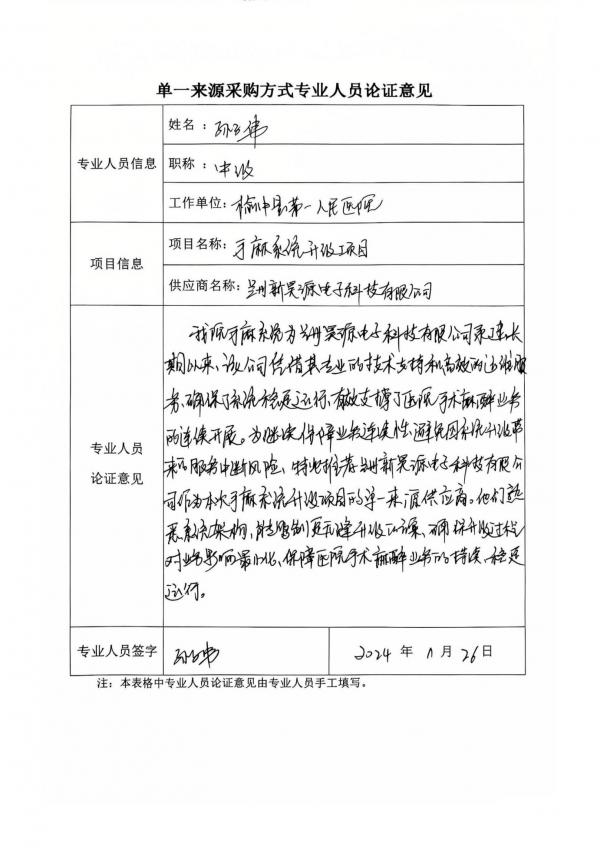 单一来源采购方式专业人员论证意见
专业人员信息
姓名：孙 伟
职称：中级
工作单位：榆中县第一人民医院
项目信息
项目名称：手麻系统升级项目
供应商名称：兰州新昊源电子科技有限公司
专业人员
论证意见
我院手麻系统为兰州昊源电子科技有限公司承建，长
期以来，该公司凭借其专业的技术支持和高效的运维服
务，确保了系统稳定运行，有效支撑了医院手术麻醉业务
的连续开展。为继续保障业务连续性，避免因系统升级带
来的服务中断风险，特此推荐兰州新昊源电子科技有限公
司作为本次手麻系统升级项目的单一来源供应商。他们熟
悉系统架构，能 制定无缝升级方案，确保升级过程
对业务影响最小化，保障医院手术麻醉业务的持续、稳定
运行。
专业人员签字
孙 伟
2024 年 11 月 26 日
注：本表格中专业人员论证意见由专业人员手工填写。